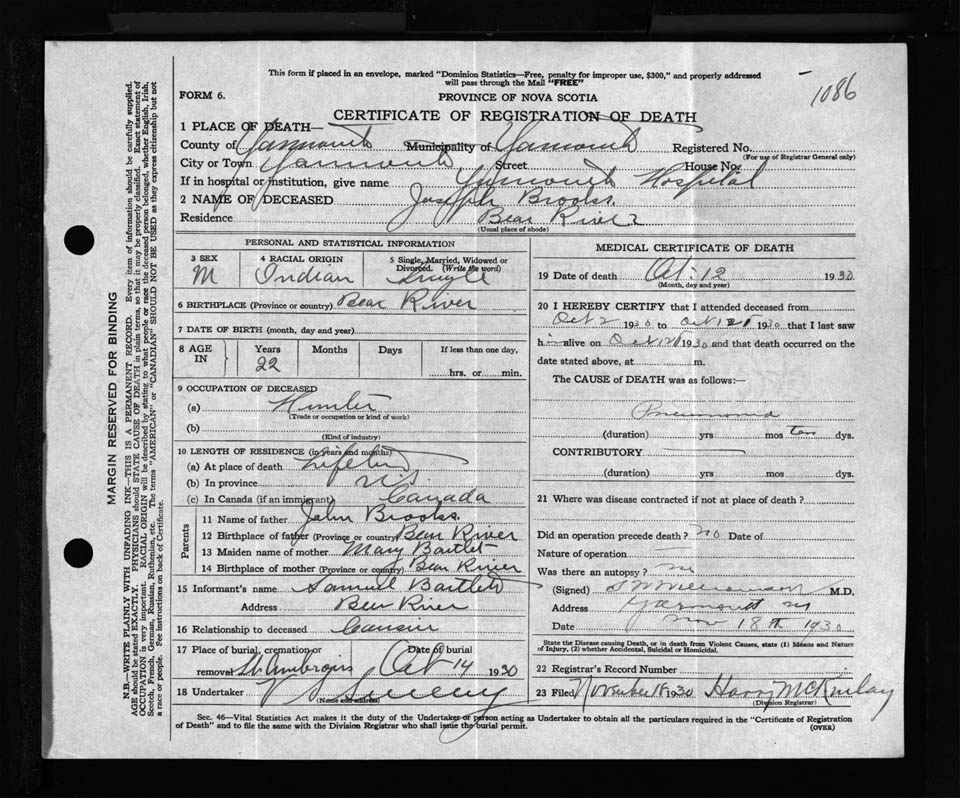 1086
This form if placed in an envelope, marked "Dominion Statistics—Free, penalty for improper use, $300," and properly addressed
will pass through the Mail "FREE"
FORM 6.
PROVINCE OF NOVA SCOTIA
CERTIFICATE OF REGISTRATION OF DEATH
1 PLACE OF DEATH—
County of Yarmouth Municipality of Yarmouth Registered No.
(For use of Registrar General only)
City or Town Yarmouth Street House No.
If in hospital or institution, give name Yarmouth Hospital
2 NAME OF DECEASED Joseph Brooks.
Residence Bear River
(Usual place of abode)
PERSONAL AND STATISTICAL INFORMATION
3 SEX 4 RACIAL ORIGIN 5 Single, Married, Widowed or
Divorced. (Write the word)
M Indian Single
6 BIRTHPLACE (Province or country) Bear River
7 DATE OF BIRTH (month, day and year)
8 AGE IN Years Months Days If less than one day,
22 hrs. or min.
9 OCCUPATION OF DECEASED
(a) Hunter
(Trade or occupation or kind of work)
(b)
(Kind of industry)
10 LENGTH OF RESIDENCE (in years and months)
(a) At place of death Lifetime
(b) In province N.S.
(c) In Canada (if an immigrant) Canada
Parents
11 Name of father John Brooks.
12 Birthplace of father (Province or country) Bear River
13 Maiden name of mother Mary Bartlet
14 Birthplace of mother (Province or country) Bear River
15 Informant's name Samuel Bartlett
Address Bear River
16 Relationship to deceased Cousin
17 Place of burial, cremation or Date of burial
removal St. Ambrogis Oct 14 1930
18 Undertaker V S Sweeny
(Name and address)
MEDICAL CERTIFICATE OF DEATH
19 Date of death Oct. 12 1930
(Month, day and year)
20 I HEREBY CERTIFY that I attended deceased from
Oct 2 1930 to Oct 12 1930 that I last saw
him alive on Oct 12 1930 and that death occurred on the
date stated above, at m.
The CAUSE of DEATH was as follows:—
Pneumonia
(duration) yrs mos ten dys.
CONTRIBUTORY
(duration) yrs mos dys.
21 Where was disease contracted if not at place of death?
Did an operation precede death? No Date of
Nature of operation
Was there an autopsy? no
(Signed) Williamson M.D.
Address Yarmouth NS
Date Nov 18th 1930
State the Disease causing Death, or in death from Violent Causes, state (1) Means and Nature
of Injury, (2) whether Accidental, Suicidal or Homicidal.
22 Registrar's Record Number
23 Filed November 18 1930 Harry McKinlay
(Division Registrar)
Sec. 46—Vital Statistics Act makes it the duty of the Undertaker or person acting as Undertaker to obtain all the particulars required in the "Certificate of Registration
of Death" and to file the same with the Division Registrar who shall issue the burial permit.
(OVER)
MARGIN RESERVED FOR BINDING
N.B.—WRITE PLAINLY WITH UNFADING INK—THIS IS A PERMANENT RECORD. Every item of information should be carefully supplied.
AGE should be stated EXACTLY. PHYSICIANS should STATE CAUSE OF DEATH in plain terms, so that it may be properly classified. Exact statement of
OCCUPATION is very important. RACIAL ORIGIN will be described by stating to what people or race the deceased person belonged, whether English, Irish,
Scotch, French, German, Russian, Ruthenian, etc. The terms "AMERICAN" or "CANADIAN" SHOULD NOT BE USED as they express citizenship but not
a race or people. See instructions on back of Certificate.